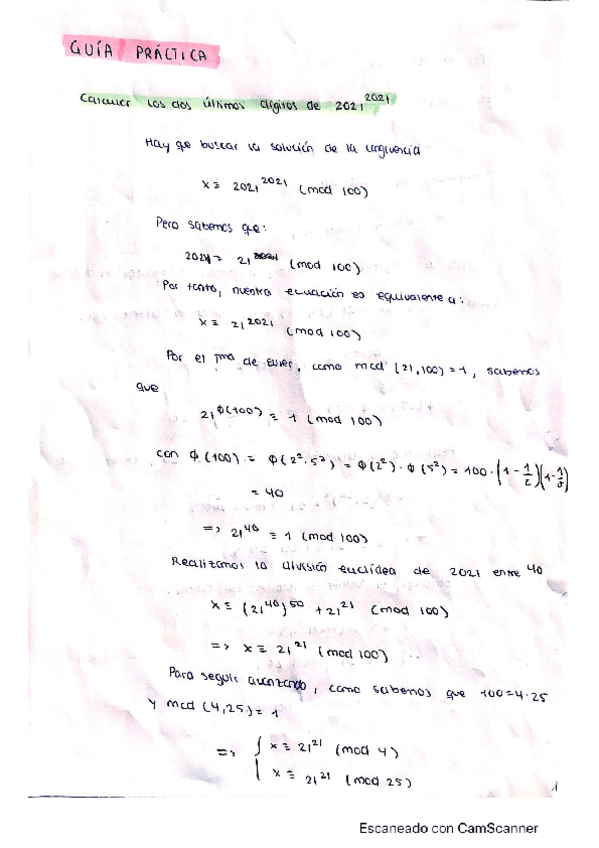 GUÍA PRÁCTICA
Calcular los dos últimos dígitos de 2021^2021
Hay qe buscar la solución de la congruencia
x ≡ 2021^2021 (mod 100)
Pero sabemos qe:
2021 ≡ 21 (mod 100)
Por tanto, nuestra ecuación es equivalente a:
x ≡ 21^2021 (mod 100)
Por el Tma de Euler, como mcd (21,100) = 1, sabemos
que
21^ϕ(100) ≡ 1 (mod 100)
con ϕ(100) = ϕ(2^2·5^2) = ϕ(2^2)·ϕ(5^2) = 100·(1-1/2)(1-1/5)
= 40
=> 21^40 ≡ 1 (mod 100)
Realizamos la división euclídea de 2021 entre 40
x ≡ (21^40)^50 + 21^21 (mod 100)
=> x ≡ 21^21 (mod 100)
Para seguir avanzando, como sabemos que 100=4·25
y mcd (4,25) = 1
=> { x ≡ 21^21 (mod 4)
x ≡ 21^21 (mod 25)
1
Escaneado con CamScanner